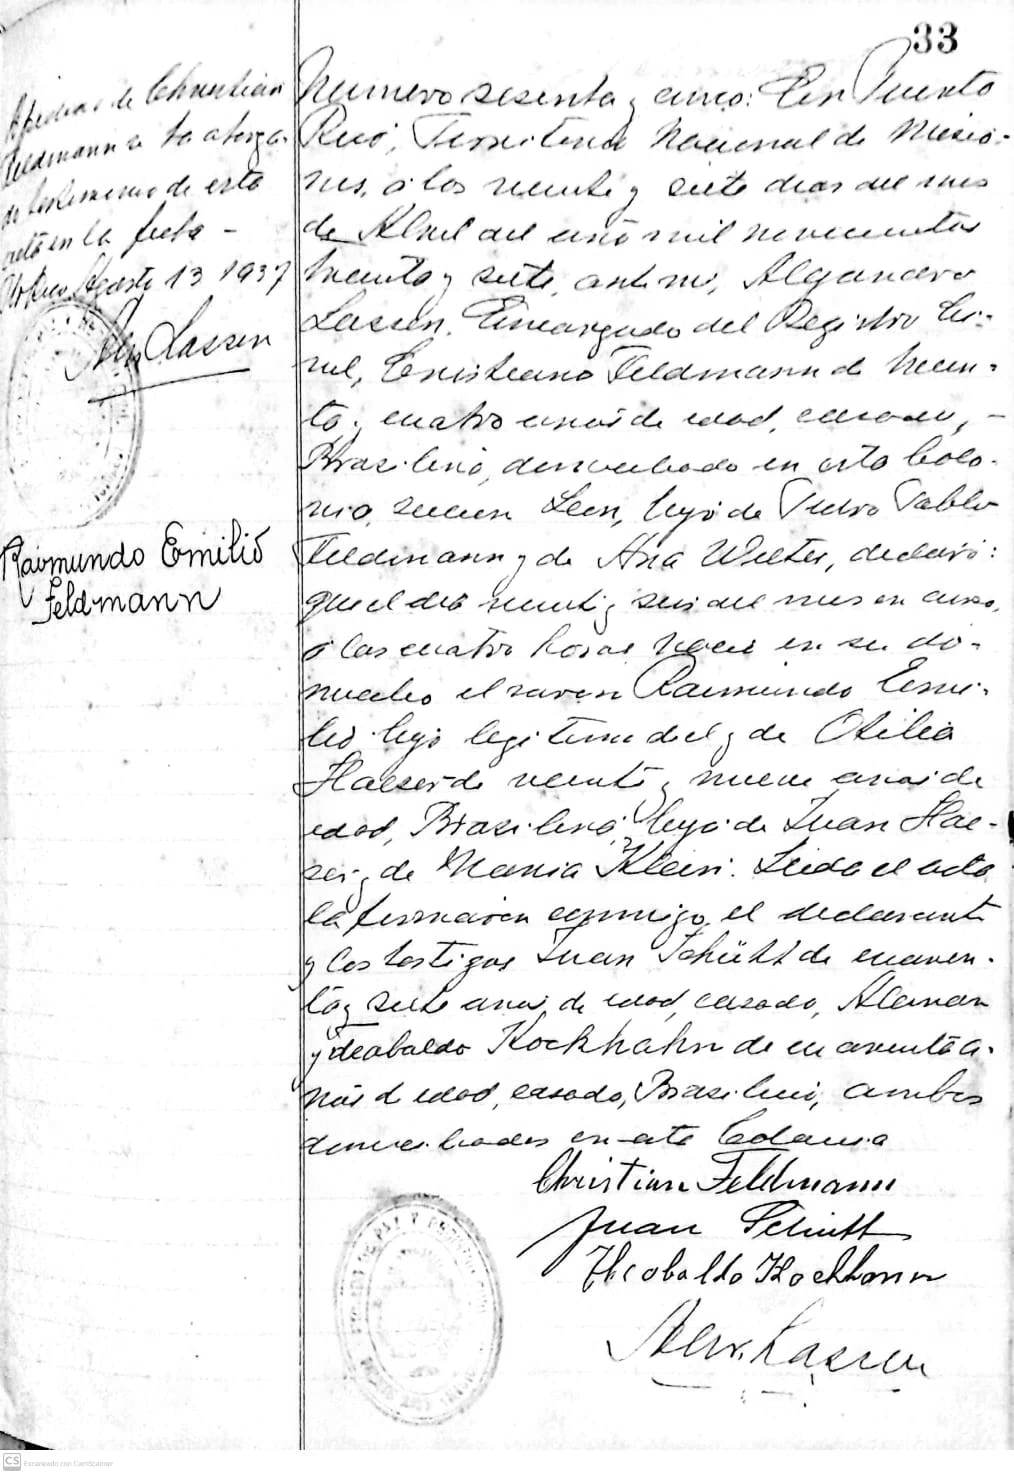 33
Apedido de Christian
Feldmann se ha otorga-
do testimonio de esta
acta en la fecha -
Pto Rico Agosto 13 1937
Alex Lassen
Raimundo Emilio
Feldmann
Numero sesenta y cinco: En Puerto
Rico, Territorio Nacional de Misio-
nes, a los veinte y siete dias del mes
de Abril del año mil novecientos
treinta y siete, ante mi, Alejandro
Lassen, Encargado del Registro Ci-
vil, Cristiano Feldmann de trein-
ta y cuatro años de edad, casado, -
Brasilero, domiciliado en esta Colo-
nia, seccion Leon, hijo de Pedro Pablo
Feldmann y de Ana Welter, declaró:
que el dia veinte y seis del mes en curso,
a las cuatro horas nació en su do-
micilio el varon Raimundo Emi-
lio hijo legitimo del y de Otilia
Haeser de veinte y nueve años de
edad, Brasilera, hija de Juan Hae-
ser y de Maria Klein. Leida el acta
la firmaron conmigo, el declarante
y los testigos Juan Schütt de cuaren-
ta y siete años de edad, casado, Aleman
y Teobaldo Kochhahn de cuarenta a-
ños d edad, casado, Brasilero, ambos
domiciliados en esta Colonia
Christian Feldmann
Juan Schütt
Theobaldo Kochhann
Alex. Lassen
CS Escaneado con CamScanner